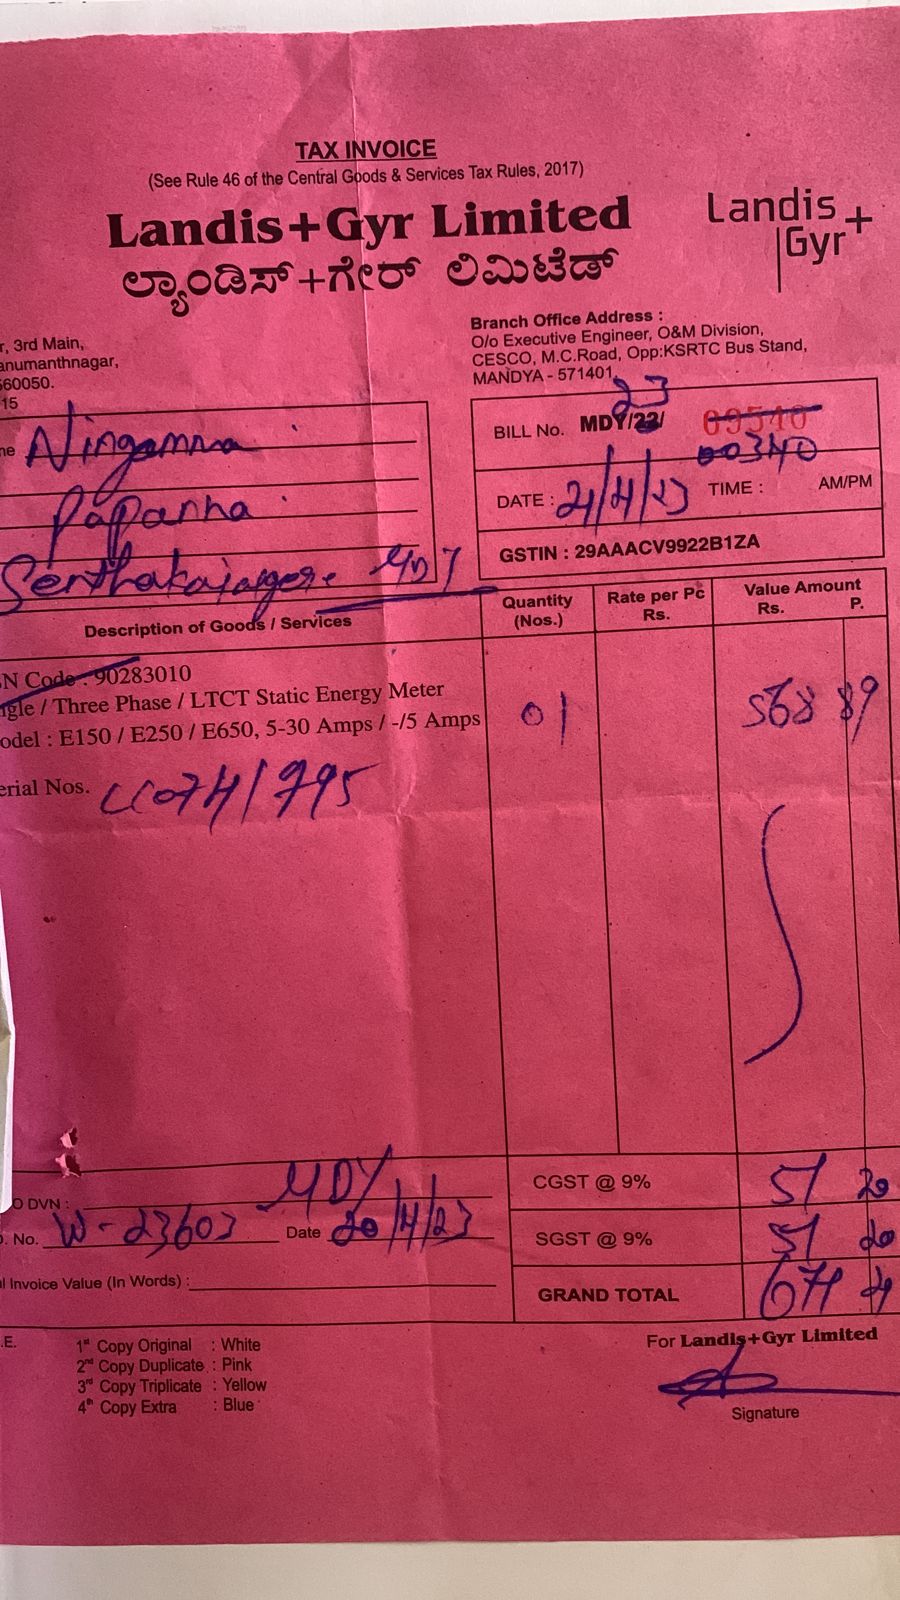 TAX INVOICE
(See Rule 46 of the Central Goods & Services Tax Rules, 2017)
Landis+Gyr Limited
ಲ್ಯಾಂಡಿಸ್+ಗೇರ್ ಲಿಮಿಟೆಡ್
Landis
Gyr+
r, 3rd Main,
anumanthnagar,
560050.
15
Branch Office Address :
O/o Executive Engineer, O&M Division,
CESCO, M.C.Road, Opp:KSRTC Bus Stand,
MANDYA - 571401.
me Ningamma
Papanna
MDY
23
BILL No. MDY/22/ 09540
00340
DATE : 21/4/23 TIME : AM/PM
GSTIN : 29AAACV9922B1ZA
Description of Goods / Services Quantity (Nos.) Rate per Pc Rs. Value Amount Rs. P.
N Code : 90283010
ngle / Three Phase / LTCT Static Energy Meter
odel : E150 / E250 / E650, 5-30 Amps / -/5 Amps 01 568 89
erial Nos.
MDY
O DVN :
. No. W-23603 Date 20/4/23
l Invoice Value (In Words) :
CGST @ 9% 51 20
SGST @ 9% 51 20
GRAND TOTAL 671
.E.
1st Copy Original : White
2nd Copy Duplicate : Pink
3rd Copy Triplicate : Yellow
4th Copy Extra : Blue
For Landis+Gyr Limited
Signature